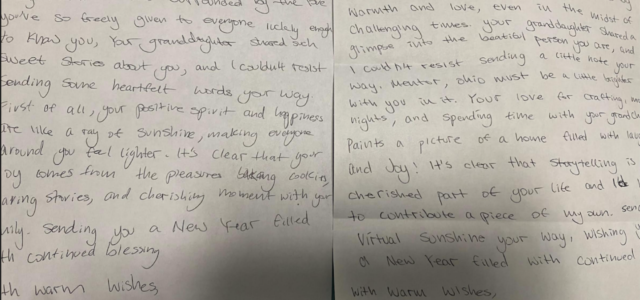 you've so freely given to everyone lucky enough
to know you, Your granddaughter shared such
sweet stories about you, and I couldn't resist
sending some heartfelt words your way.
First of all, your positive spirit and happiness
are like a ray of sunshine, making everyone
around you feel lighter. It's clear that your
joy comes from the pleasures baking cookies,
aring stories, and cherishing moment with your
mily. Sending you a New Year filled
th continued blessing
th warm wishes,
warmth and love, even in the midst of
challenging times. your granddaughter shared a
glimpse into the beatiful person you are, and
I couldn't resist sending a little note your
way. Mentor, Ohio must be a little brighter
with you in it. Your love for crafting,
nights, and spending time with your grandch
Paints a picture of a home filled with
and Joy! It's clear that storytelling is
cherished part of your life and
to contribute a piece of my own. send
Virtual sunshine your way, wishing
a New Year filled with continued
with warm wishes,